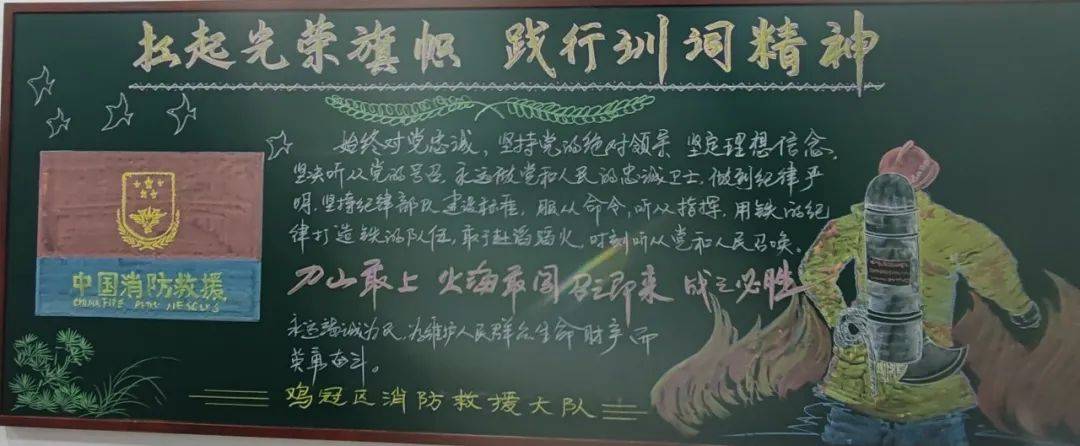 扛起光荣旗帜 践行训词精神
始终对党忠诚，坚持党的绝对领导 坚定理想信念，
坚决听从党的号召，永远做党和人民的忠诚卫士，做到纪律严
明，坚持纪律部队建设标准，服从命令，听从指挥，用铁的纪
律打造铁的队伍，敢于赴汤蹈火，时刻听从党和人民召唤。
刀山敢上 火海敢闯 召之即来 战之必胜
永远竭诚为民，为维护人民群众生命财产而
英勇奋斗。
中国消防救援
CHINA FIRE
鸡冠区消防救援大队